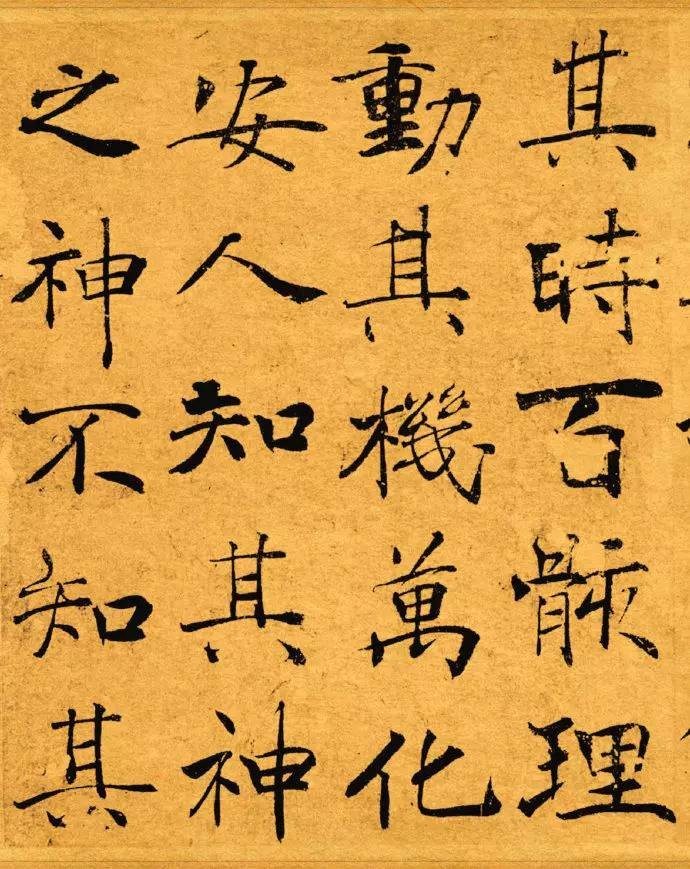 其時百骸理
動其機萬化
安人知其神
之神不知其